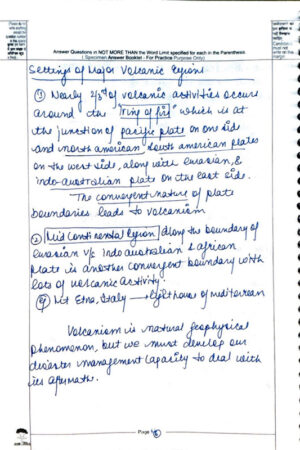 Answer Questions in NOT MORE THAN the Word Limit specified for each in the Parenthesis.
( Specimen Answer Booklet - For Practice Purpose Only)
Candidates must not write on this margin
Settings of Major Volcanic Regions
① Nearly 2/3rd of volcanic activities occurs
around the "ring of fire" which is at
the junction of pacific plate on one side
and north american, south american plates
on the west side, along with Eurasian, &
Indo-australian plate on the east side.
The convergent nature of plate
boundaries leads to volcanism
② Mid Continental Region along the boundary of
Eurasian v/s Indo australian & african
plate is another convergent boundary with
lots of volcanic activity.
eg Mt Etna, Italy → lighthouse of mediterean
Volcanism is natural geophysical
phenomenon, but we must develop our
disaster management capacity to deal with
its aftermath.
Page